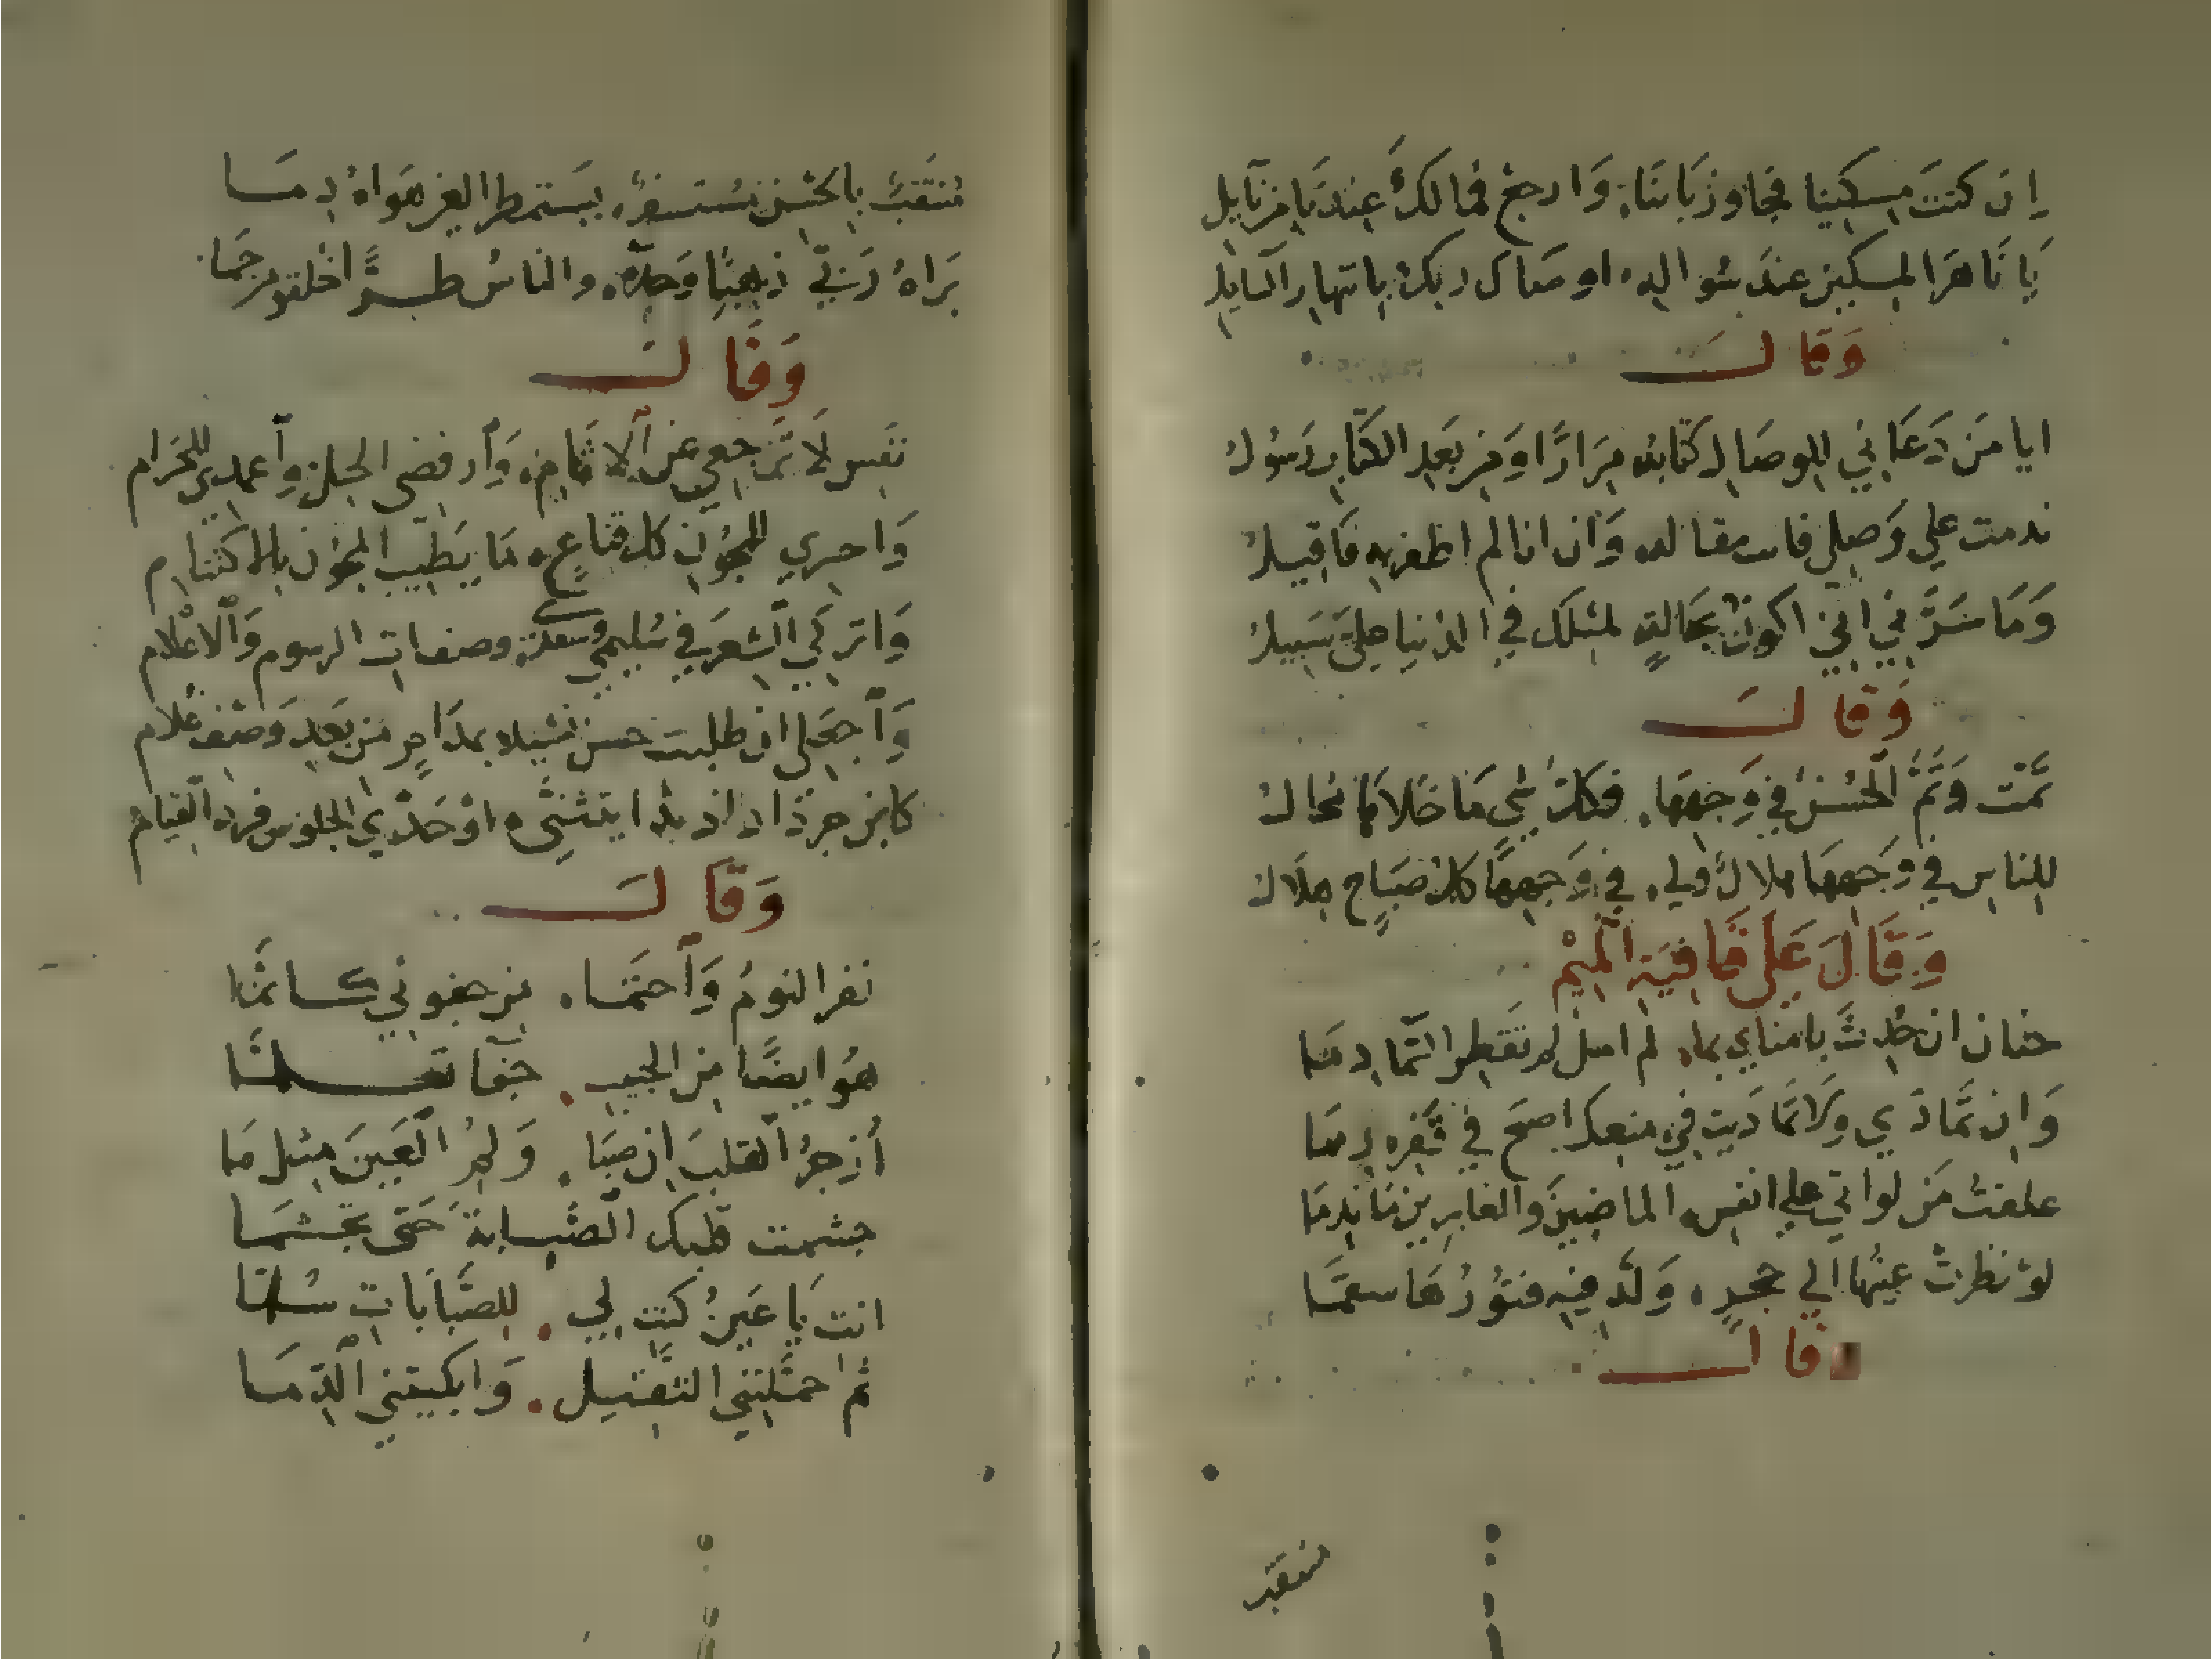 ان كنتَ مسكينا فجاوز بَابنَا. وَارجع فمالكَ عِندنَا من نَايل
يَا نَاهرَ المسكين عندَ سُواله. اوصاك ربك بانتهار السايل
وَقَالَ
ايا مَن دَعَاني للوصَال كتابُه مِرَارًا وَمن بَعدِ الكتاب رَسُولُ
ندمت علي وَصلي مقاله وَان انا لم اظفر به فَاقيلُ
وَمَا سَرَّني اني اكون بحَالةٍ لمثلك في الدنيا عليَّ سَبيلُ
وَقَالَ
تمَّت وَتمَّ الحُسنُ في وَجهِهَا. فكلُّ شي مَا خَلاهَا مُحالُ
للنَاس في وَجههَا هلالٌ ولي. في وَجههَا كلُ صَبَاحٍ هلَالُ
وَقَالَ عَلى قَافيَة المِيْمْ
ان حُدثَّ يا مناي بما. لم لم تقطر السَّمَا دمَا
وَان تمَّادَي وَلَا تمَّادَيت في منعك اصبح في قَفره رممَا
علقتُ مَن لو اتي علي انفس. الماضينَ والغابرين مَا ندمَا
لوْ نظرتْ عينُها الي حجرٍ. وَلَّد فيه فتُورُهَا سقمَا
قال
منتقبٌ بالحُسن. يستمطر العين هَواهُ دمَا
بَرَاهُ رَبّي ذهبيًا وَحدَه. والناسُ طرًّا اخلقو من حَمَا
وَقَالَ
نفس لَا تَرجعي عن الاثَامِ. وَارفضي الحل وَاعمدي للحَرام
وَاحسري للمجون كل قناعٍ. مَا يَطيب المجون بالاكتتام
وَاتركي الشعرَ في سُليمي وسعدى. وصفات الرسوم وَالاعلام
وَاجعَلي ان طلبت حسن نشيد بمدَامٍ من بَعد وَصف غلَام
اذ بدا يتثنى. اوْحَدْي الجلوس فرد القيام
وَقَالَ
نفر النومُ وَاحتمَا. من جفوني كانمَّا
هُو ايضًا من الحبيب. جفَا تعلمَّا
أزجرُ القلبَ ان صبَا. وَلمُ العَينَ مثل مَا
جشمت قلبك الصَّبَابةَ حَتى تجشمَا
انت يَا عَينُ كنت لي. للصَّبَابَات سُلمَّا
ثم حمَّلتني الثقيل. وَابكيتني الدَّمَا